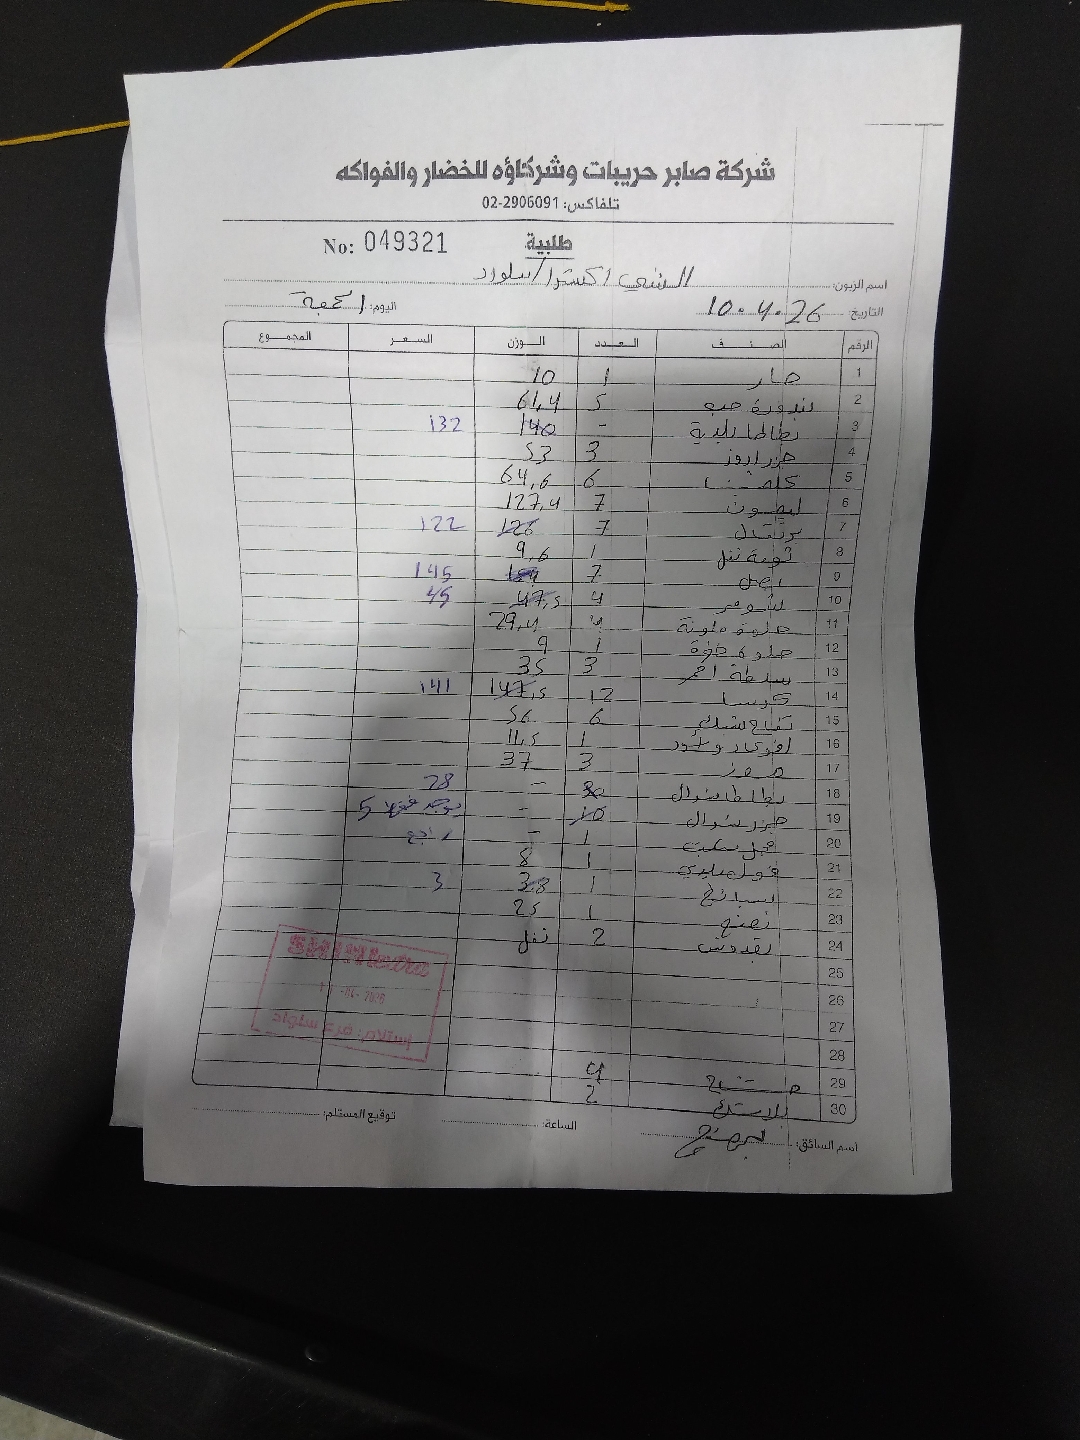 شركة صابر حريبات وشركاؤه للخضار والفواكه
تلفاكس: 02-2906091
No: 049321
طلبية
اسم الزبون: الشني اكسترا/سلواد
التاريخ: 10.4.26 اليوم: الجمعة
الرقم الصنف العدد الوزن السعر المجموع
1 1 10
2 بندورة حب 5 61,4
3 بطاطا بلدية - 140 132
4 جزر 3 53
5 كلمنتينا 6 64,6
6 ليمون 7 127,4
7 برتقال 7 126 122
8 ثومة نفل 1 9,6
9 بصل 7 145
10 شومر 4 47,5 45
11 حلوة ملونة 29,4
12 حلوة 1 9
13 سلطة احمر 3 35
14 كوسا 12 147,5 141
15 تفاح 6 56
16 افوكادو 1 11,5
17 موز 3 37
18 بطاطا شوال 30 - 28
19 جزر شوال 10 - يوجد فقط 5
20 فجل 1 - راجع
21 فول بلدي 1 8
22 سبانخ 1 3,8 3
23 نعنع 1 25
24 بقدونس 2 نفل
25
26
27
28
29 4
30 بلاستك 2
استلام: فرع سلواد
اسم السائق: الساعة: توقيع المستلم: